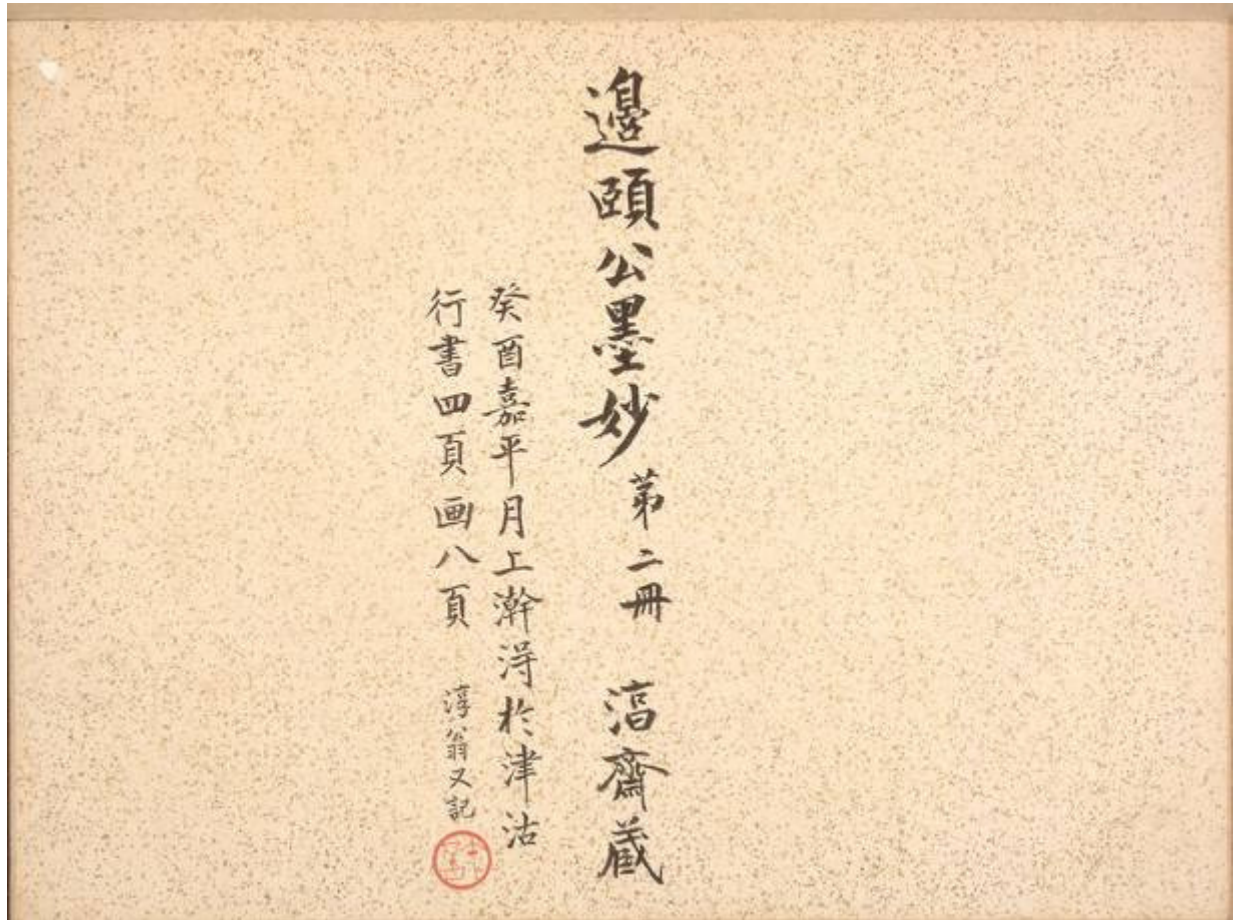 邊頤公墨妙 第二冊 滀齋蔵
癸酉嘉平月上澣淂於津沽
行書四頁画八頁 淳翁又記